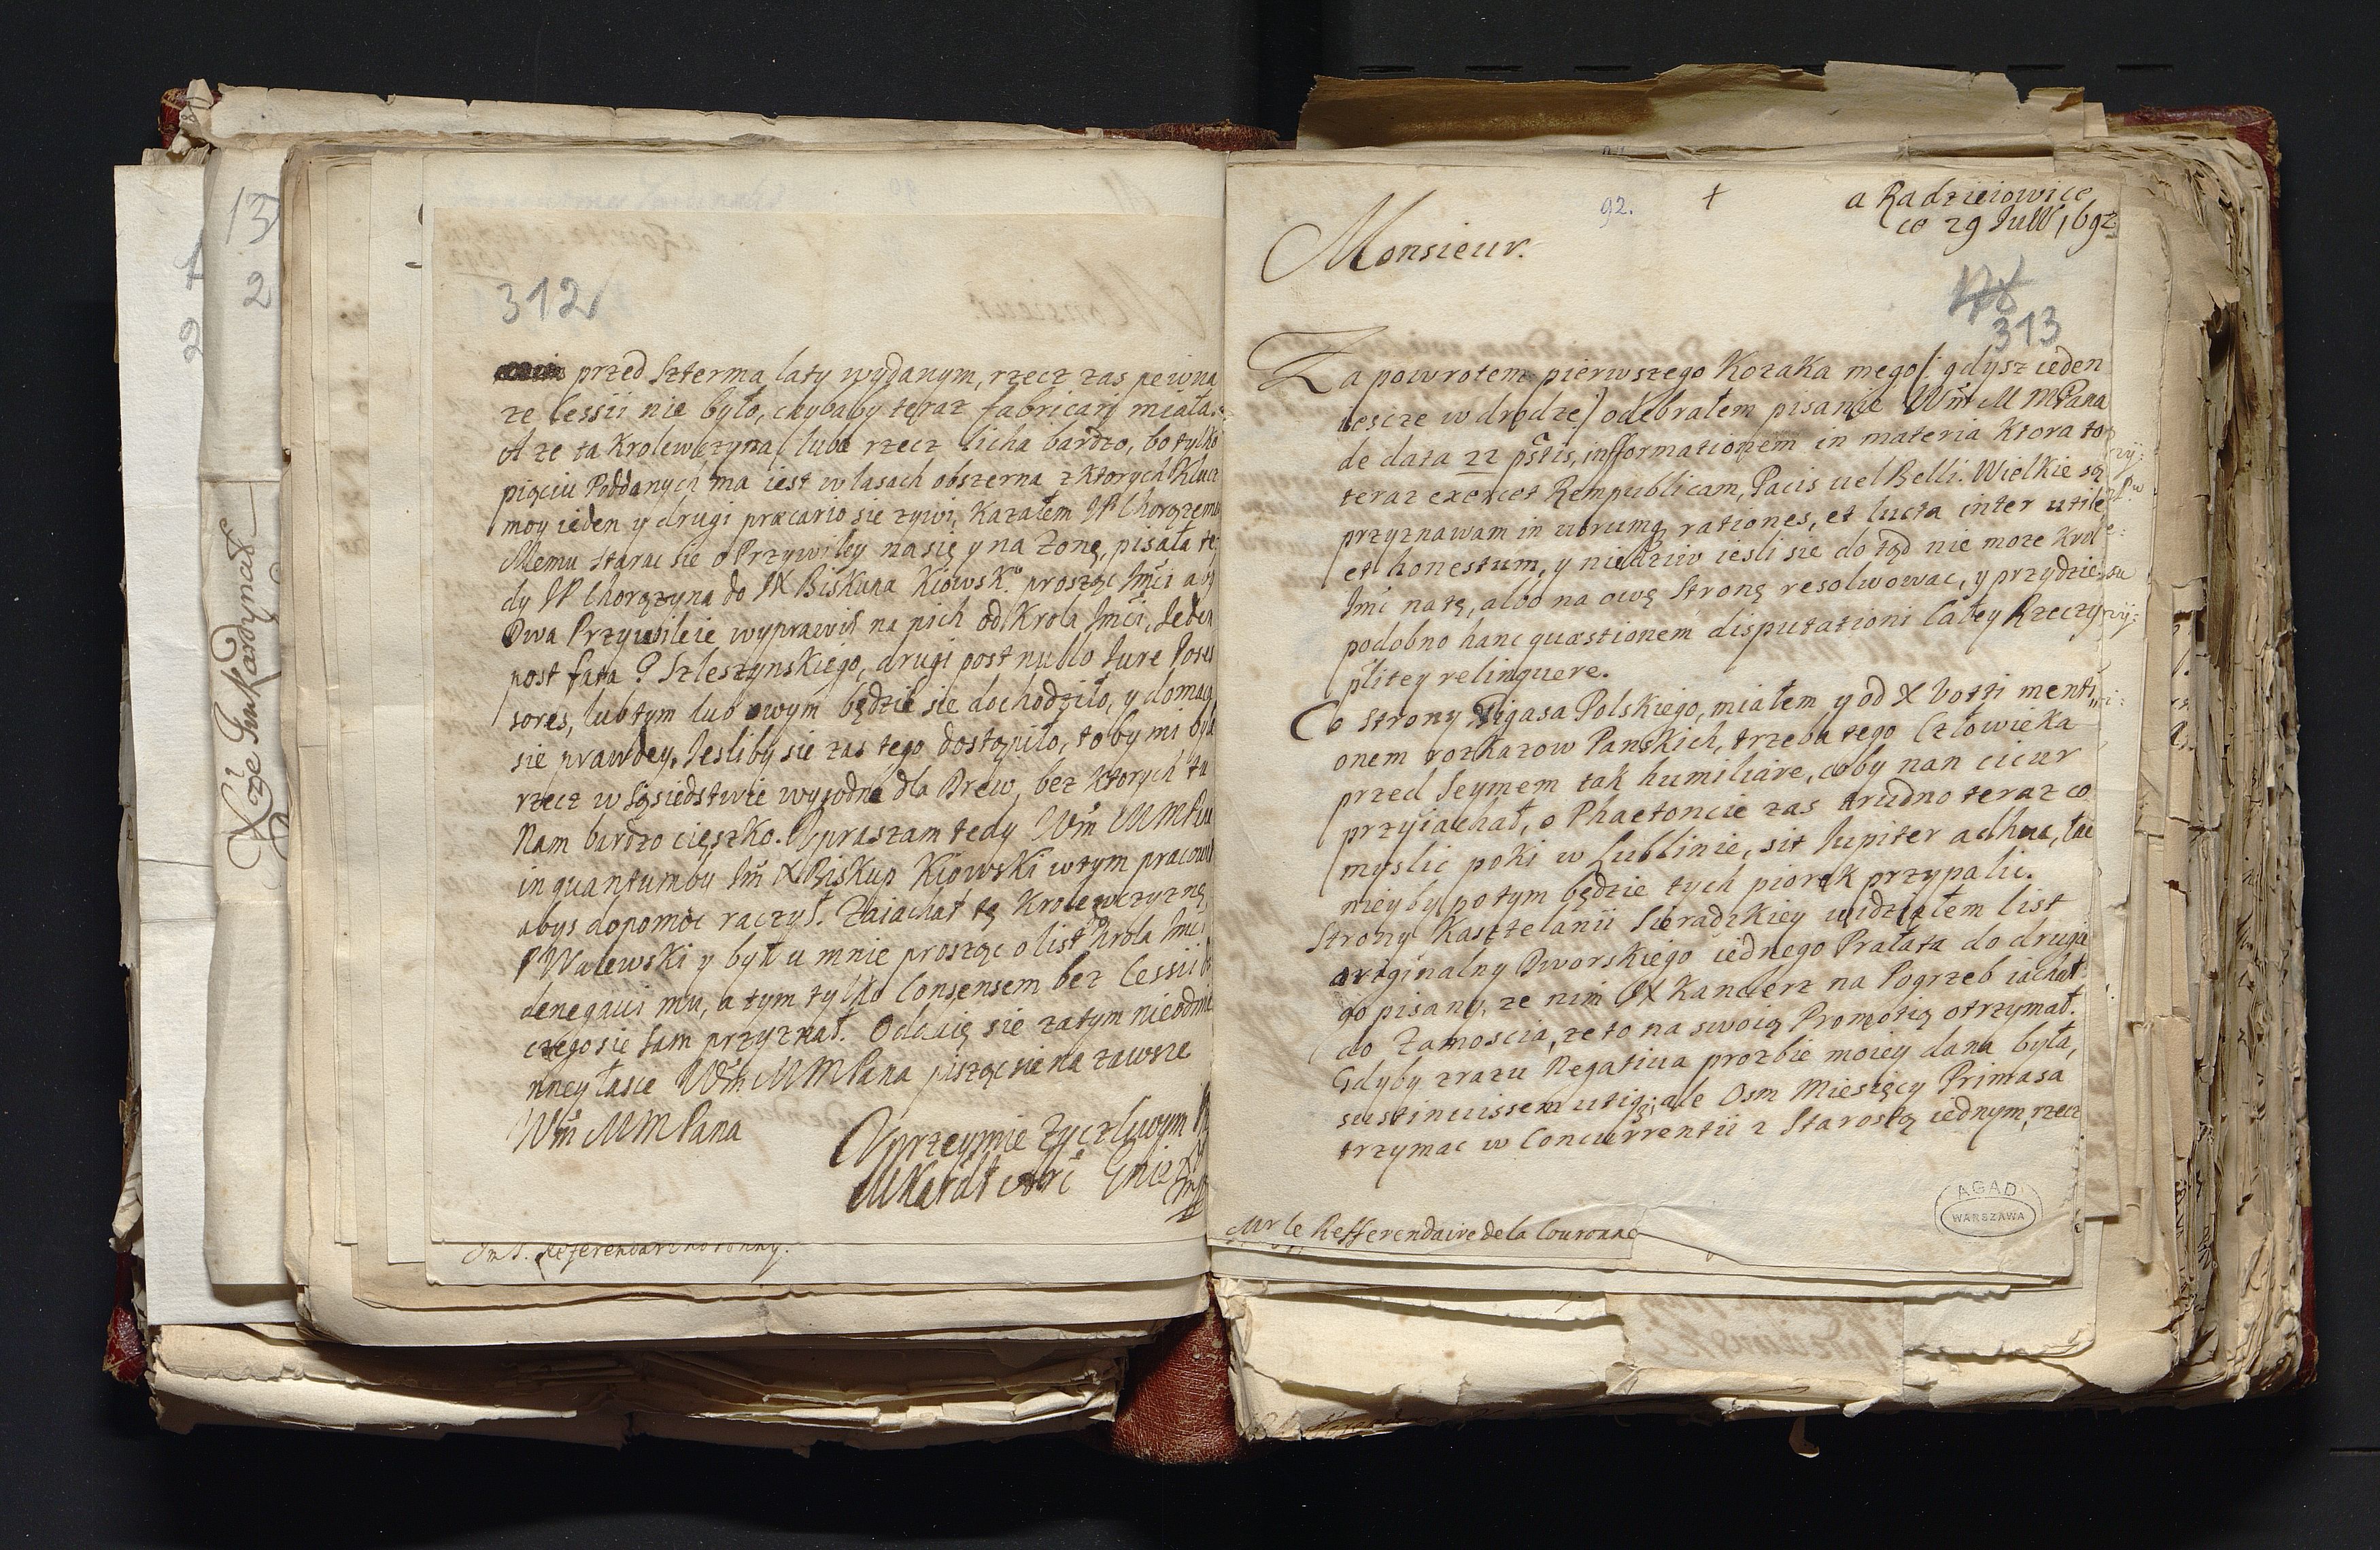 13
2
1
2
Xże Im Kardynał
312
przed szterma laty wydanym, rzecz zas pewna
ze Cessii nie było, chybaby teraz fabricari miała.
A ze ta Krolewczyzna lubo rzecz licha bardzo, bo tylko
pięciu Poddanych ma iest w lasach obszerna z ktorych Klucz
moy ieden y drugi præcario sie zywi, Kazałem JP Chorązemu
Memu starac sie o Przywiley na się y na Zonę, pisała te
dy JP Chorązyna do JX Biskupa Kiowsk.º prosząc Jmci aby
Dwa Przywileie wyprawił na nich od Krola Jmci, Jeden
post fata P Szleszynskiego, drugi post nullo Jure Poses
sores, lub tym lub owym będzie sie dochodziło, y domaga
sie prawdey. Jesliby sie zas tego dostąpiło, to by mi była
rzecz w sąsiedstwie wygodna dla Drew, bez ktorych tu
Nam bardzo cięszko. Upraszam tedy Wm MMPan
in quantumby Jm X Biskup Kiowski w tym pracował
abys dopomoc raczył. Zaiachał tę Krolewczyznę
P Walewski y był u mnie prosząc o list do Krola Jmci
denegaui mu, a tym tylko Consensem bez Cessii
czego sie sam przyznał. Oddaię sie zatym nieodmie
nney łasce Wm MMPana pisząc sie na zawsze
Wm MMPana
Uprzeymie zyczliwym
MKardł
Jm P. Referendarz Koronny.
92.
+
a Radzieiowice
ce 29 Juill 1692
Monsieur.
313
Za powrotem pierwszego Kozaka mego /: gdysz ieden
iescze w drodze) odebrałem pisanie Wm M MPana
de data 22 pstis, informationem in materia ktora to
teraz exercet Rempublicam, Pacis uel Belli. Wielkie są
przyznawam in utrumq rationes, et lucta inter utile
et honestum, y niedziw iesli sie do tąd nie moze Krol
Jmć na tę, albo na owę stronę resolwowac, y przydzie
podobno hanc quæstionem disputationi całey Rzeczy
plitey relinquere.
Co strony Gigasa Polskiego, miałem y od X Votti menti
onem rozkazow Panskich, trzeba tego Człowieka
przed Seymem tak humiliare, coby nan cicur
przyiachał, o Phaetoncie zas trudno teraz co
myslic poki w Lublinie, sit Jupiter adhuc, łac
nieyby potym będzie tych piorek przypalic.
Strony Kasztelanii Sieradzkiey widziałem list
originalny Dworskiego iednego Prałata do druga
go pisany, ze nim JX Kanclerz na Pogrzeb iachał
do Zamoscia, ze to na swoię Promotią otrzymał.
Gdyby zrazu Negatiua prozbie moiey dana była,
sustinuissem utiq; ale Osm Miesięcy Primasa
trzymac w Concurrentii z Starostą iednym, rzecz
Mr le Refferendaire de la Couronne
AGAD
WARSZAWA